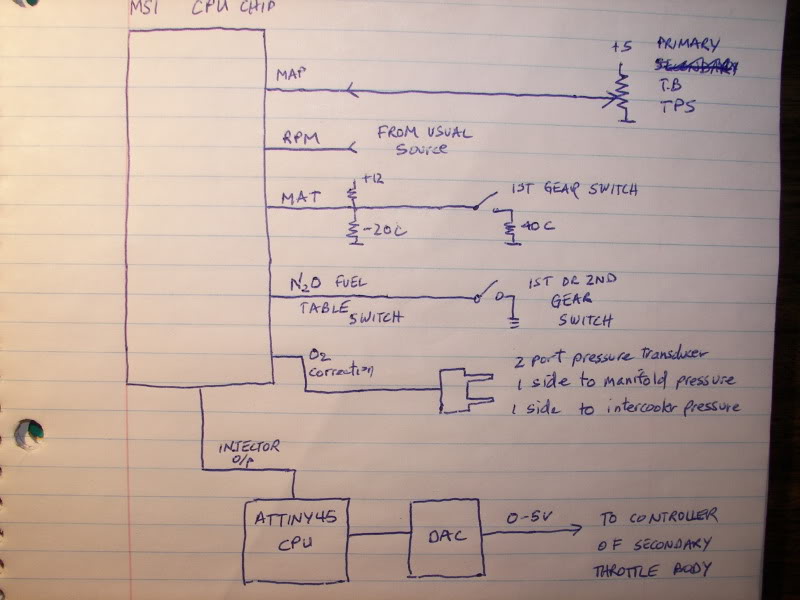 MS1 CPU CHIP
+5 PRIMARY
SECONDARY
T.B
TPS
MAP
RPM
FROM USUAL
Source
+12
MAT
1ST GEAR SWITCH
-20C
40C
N2O FUEL
TABLE
SWITCH
1ST OR 2ND
GEAR
SWITCH
O2
Correction
2 port pressure transducer
1 side to manifold pressure
1 side to intercooler pressure
INJECTOR
O/P
ATTINY45
CPU
DAC
0-5V
TO CONTROLLER
OF SECONDARY
THROTTLE BODY